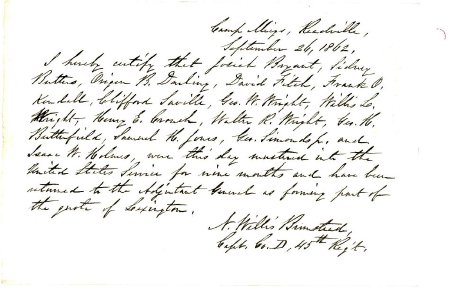 Camp Meigs, Readville,
September 26, 1862,
I hereby certify that Josiah Bryant, Sidney
Butters, B. Darling, David Fitch, Frank O.
Kendall, Clifford Saville, Geo. W. Wright, Willis L.
Wright, Henry E. Crouch, Walter R. Wright, Geo. H.
Butterfield, Samuel H. Jones, Geo. Simonds jr. and
Isaac W. Holmes, were this day mustered into the
United States Service for nine months and have been
returned to the Adjutant General as forming part of
the quota of Lexington.
N. Willis Bumstead,
Capt. Co. D, 45th Reg't.